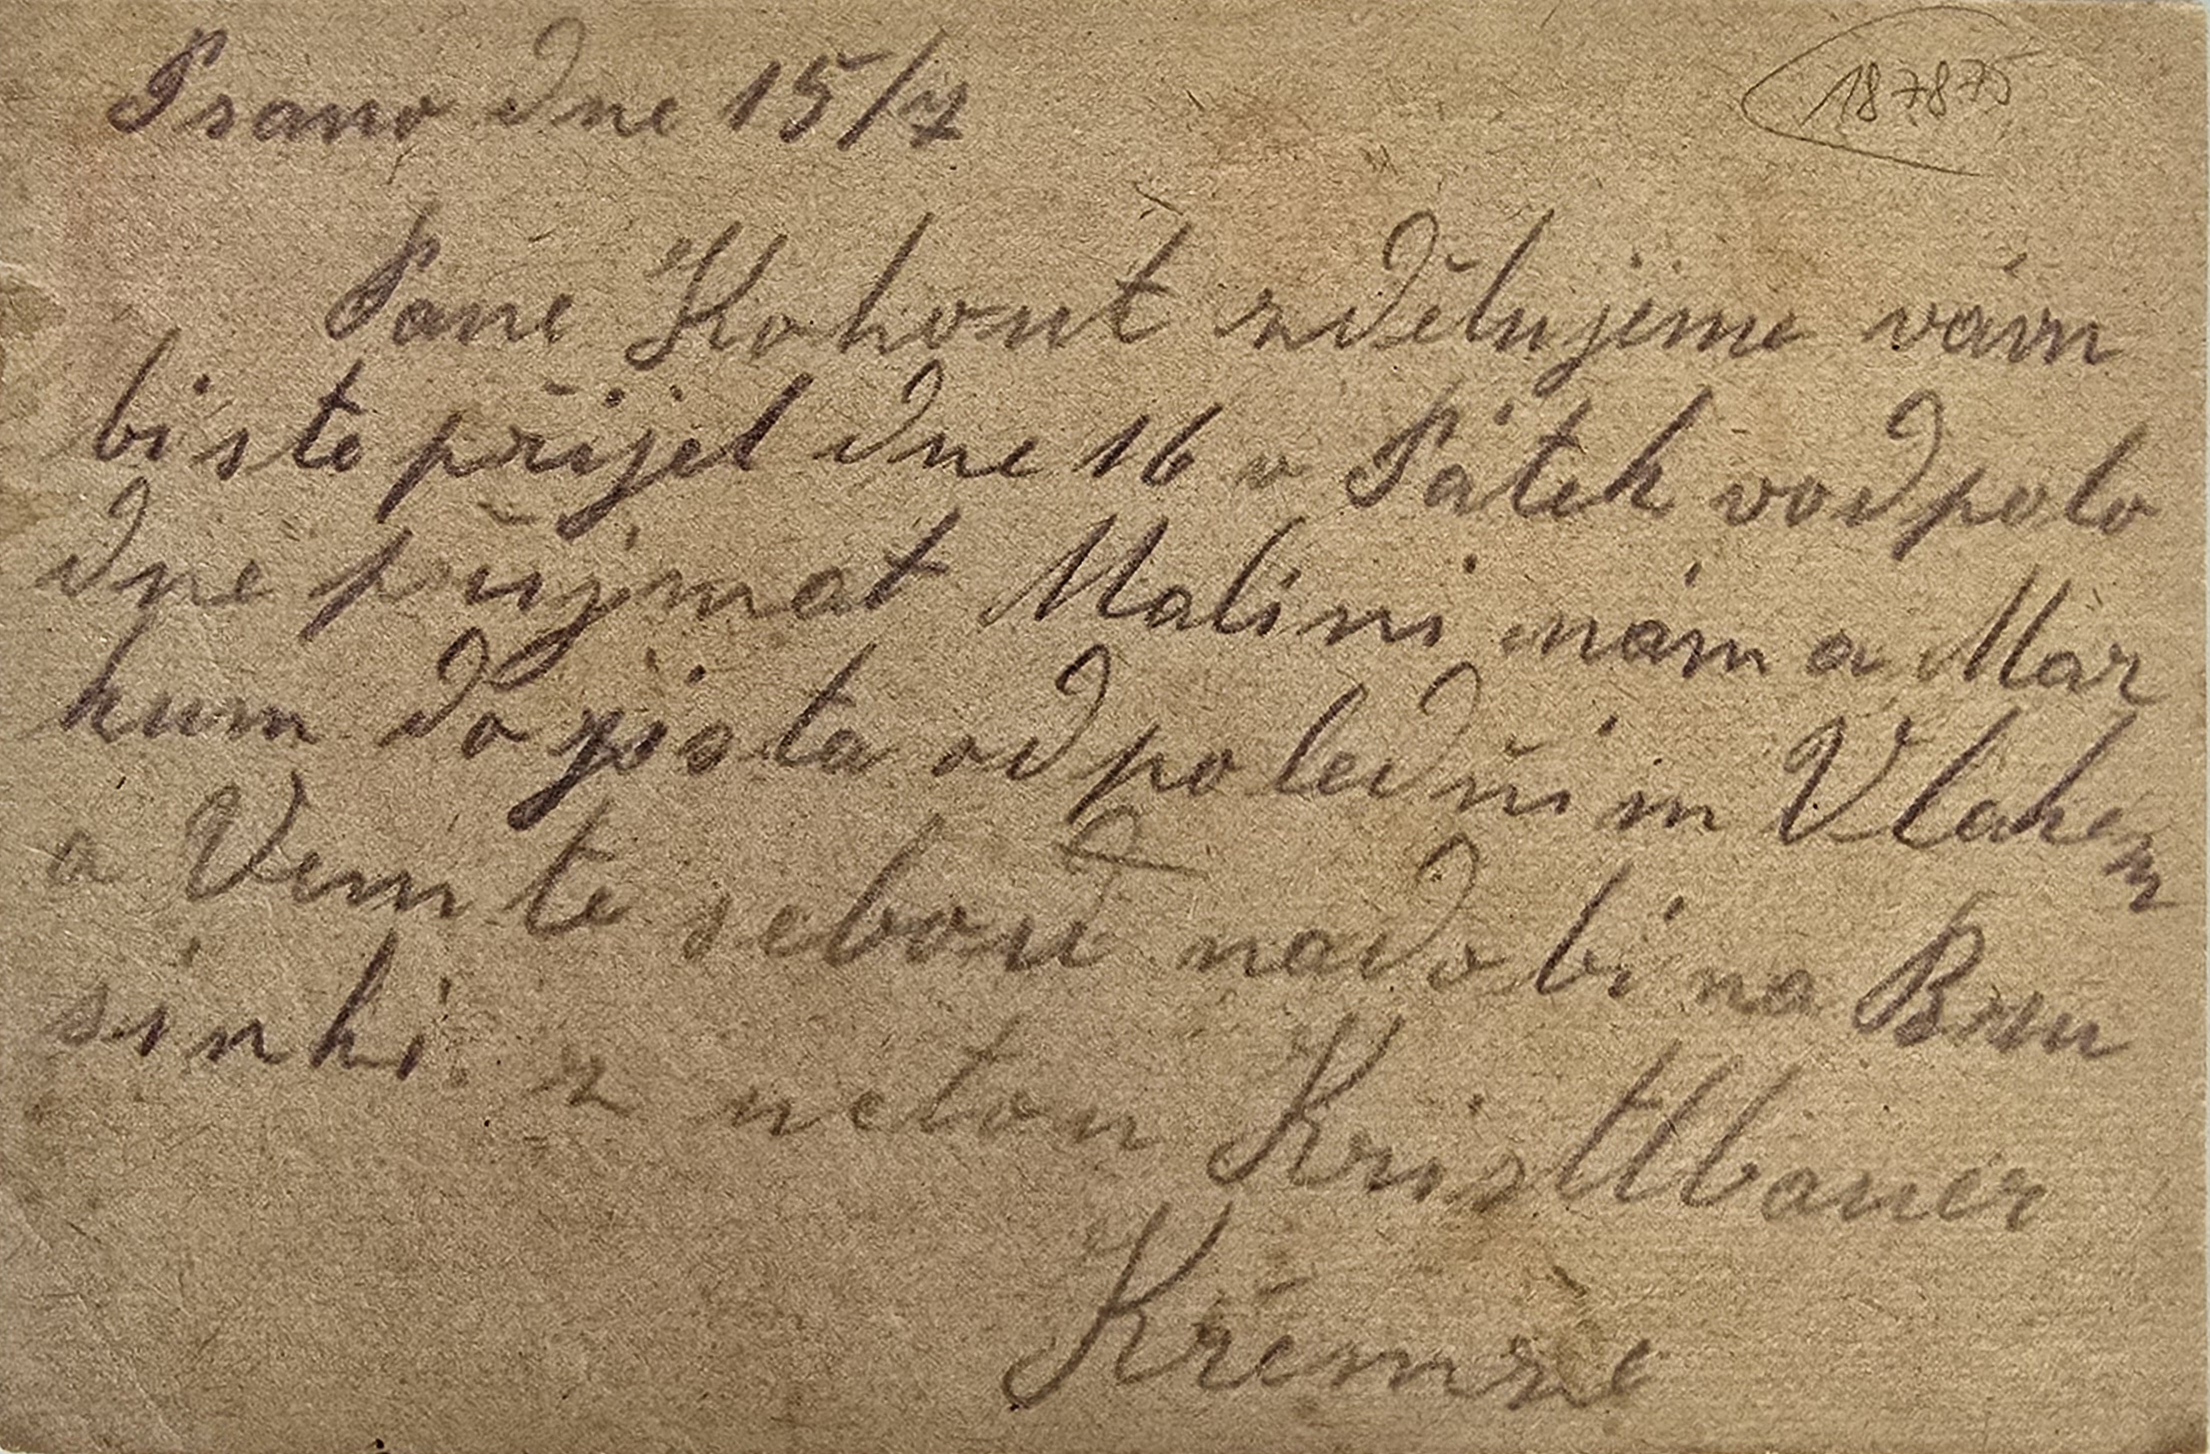 Psano dne 15/7
187875
Pane Kohout zdělujeme vám
bi ste přijel dne 16 v Pátek vodpolo
dne přijmat Malini nám a Mar
kum do jista odpoledním Vlakem
a Vemte sebou nadobi na Bru
sinki. z netou Kristlbauer
Křemže